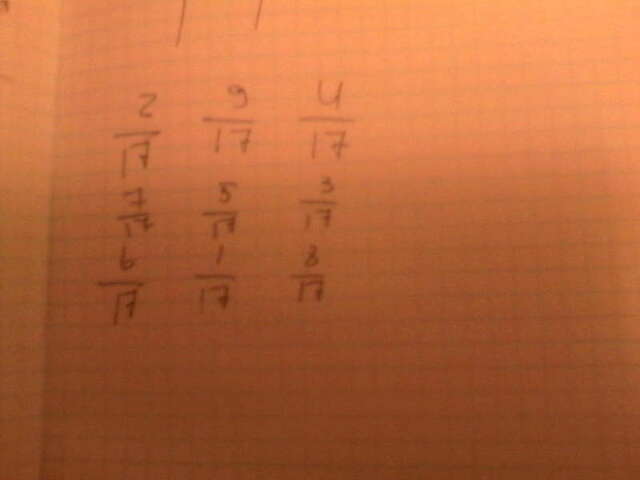 2/17 9/17 4/17
7/17 5/17 3/17
6/17 1/17 8/17